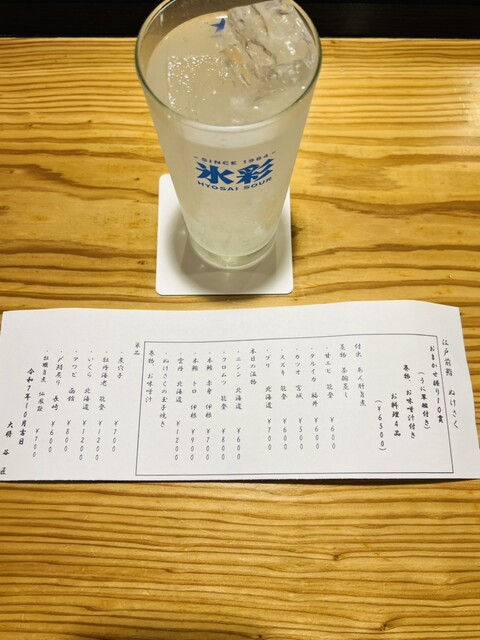 SINCE 1984
氷彩
HYOSAI SOUR
江戸前鮨 ぬけさく
おまかせ握り10貫
(うに軍艦付き)
巻物、お味噌汁付き
お料理4品
(¥6500)
付出 あん肝旨煮
蒸物 茶碗蒸し
・甘エビ 能登 ¥600
・タルイカ 福井 ¥600
・カツオ 宮城 ¥500
・スズキ 能登 ¥600
・ブリ 北海道 ¥700
本日の温物
・ニシン 北海道 ¥600
・フロムツ 能登 ¥800
・本鮪 赤身 伊根 ¥700
・本鮪 トロ 伊根 ¥900
・雲丹 北海道 ¥1200
・ぬけさくの玉子焼き
巻物 お味噌汁
単品
・煮穴子 ¥700
・牡丹海老 能登 ¥1200
・いくら 北海道 ¥1200
・アワビ 函館 ¥800
・〆鯖炙り 長崎 ¥600
・牡蠣旨煮 仙鳳趾 ¥700
令和7年10月吉日
大将 谷 匠